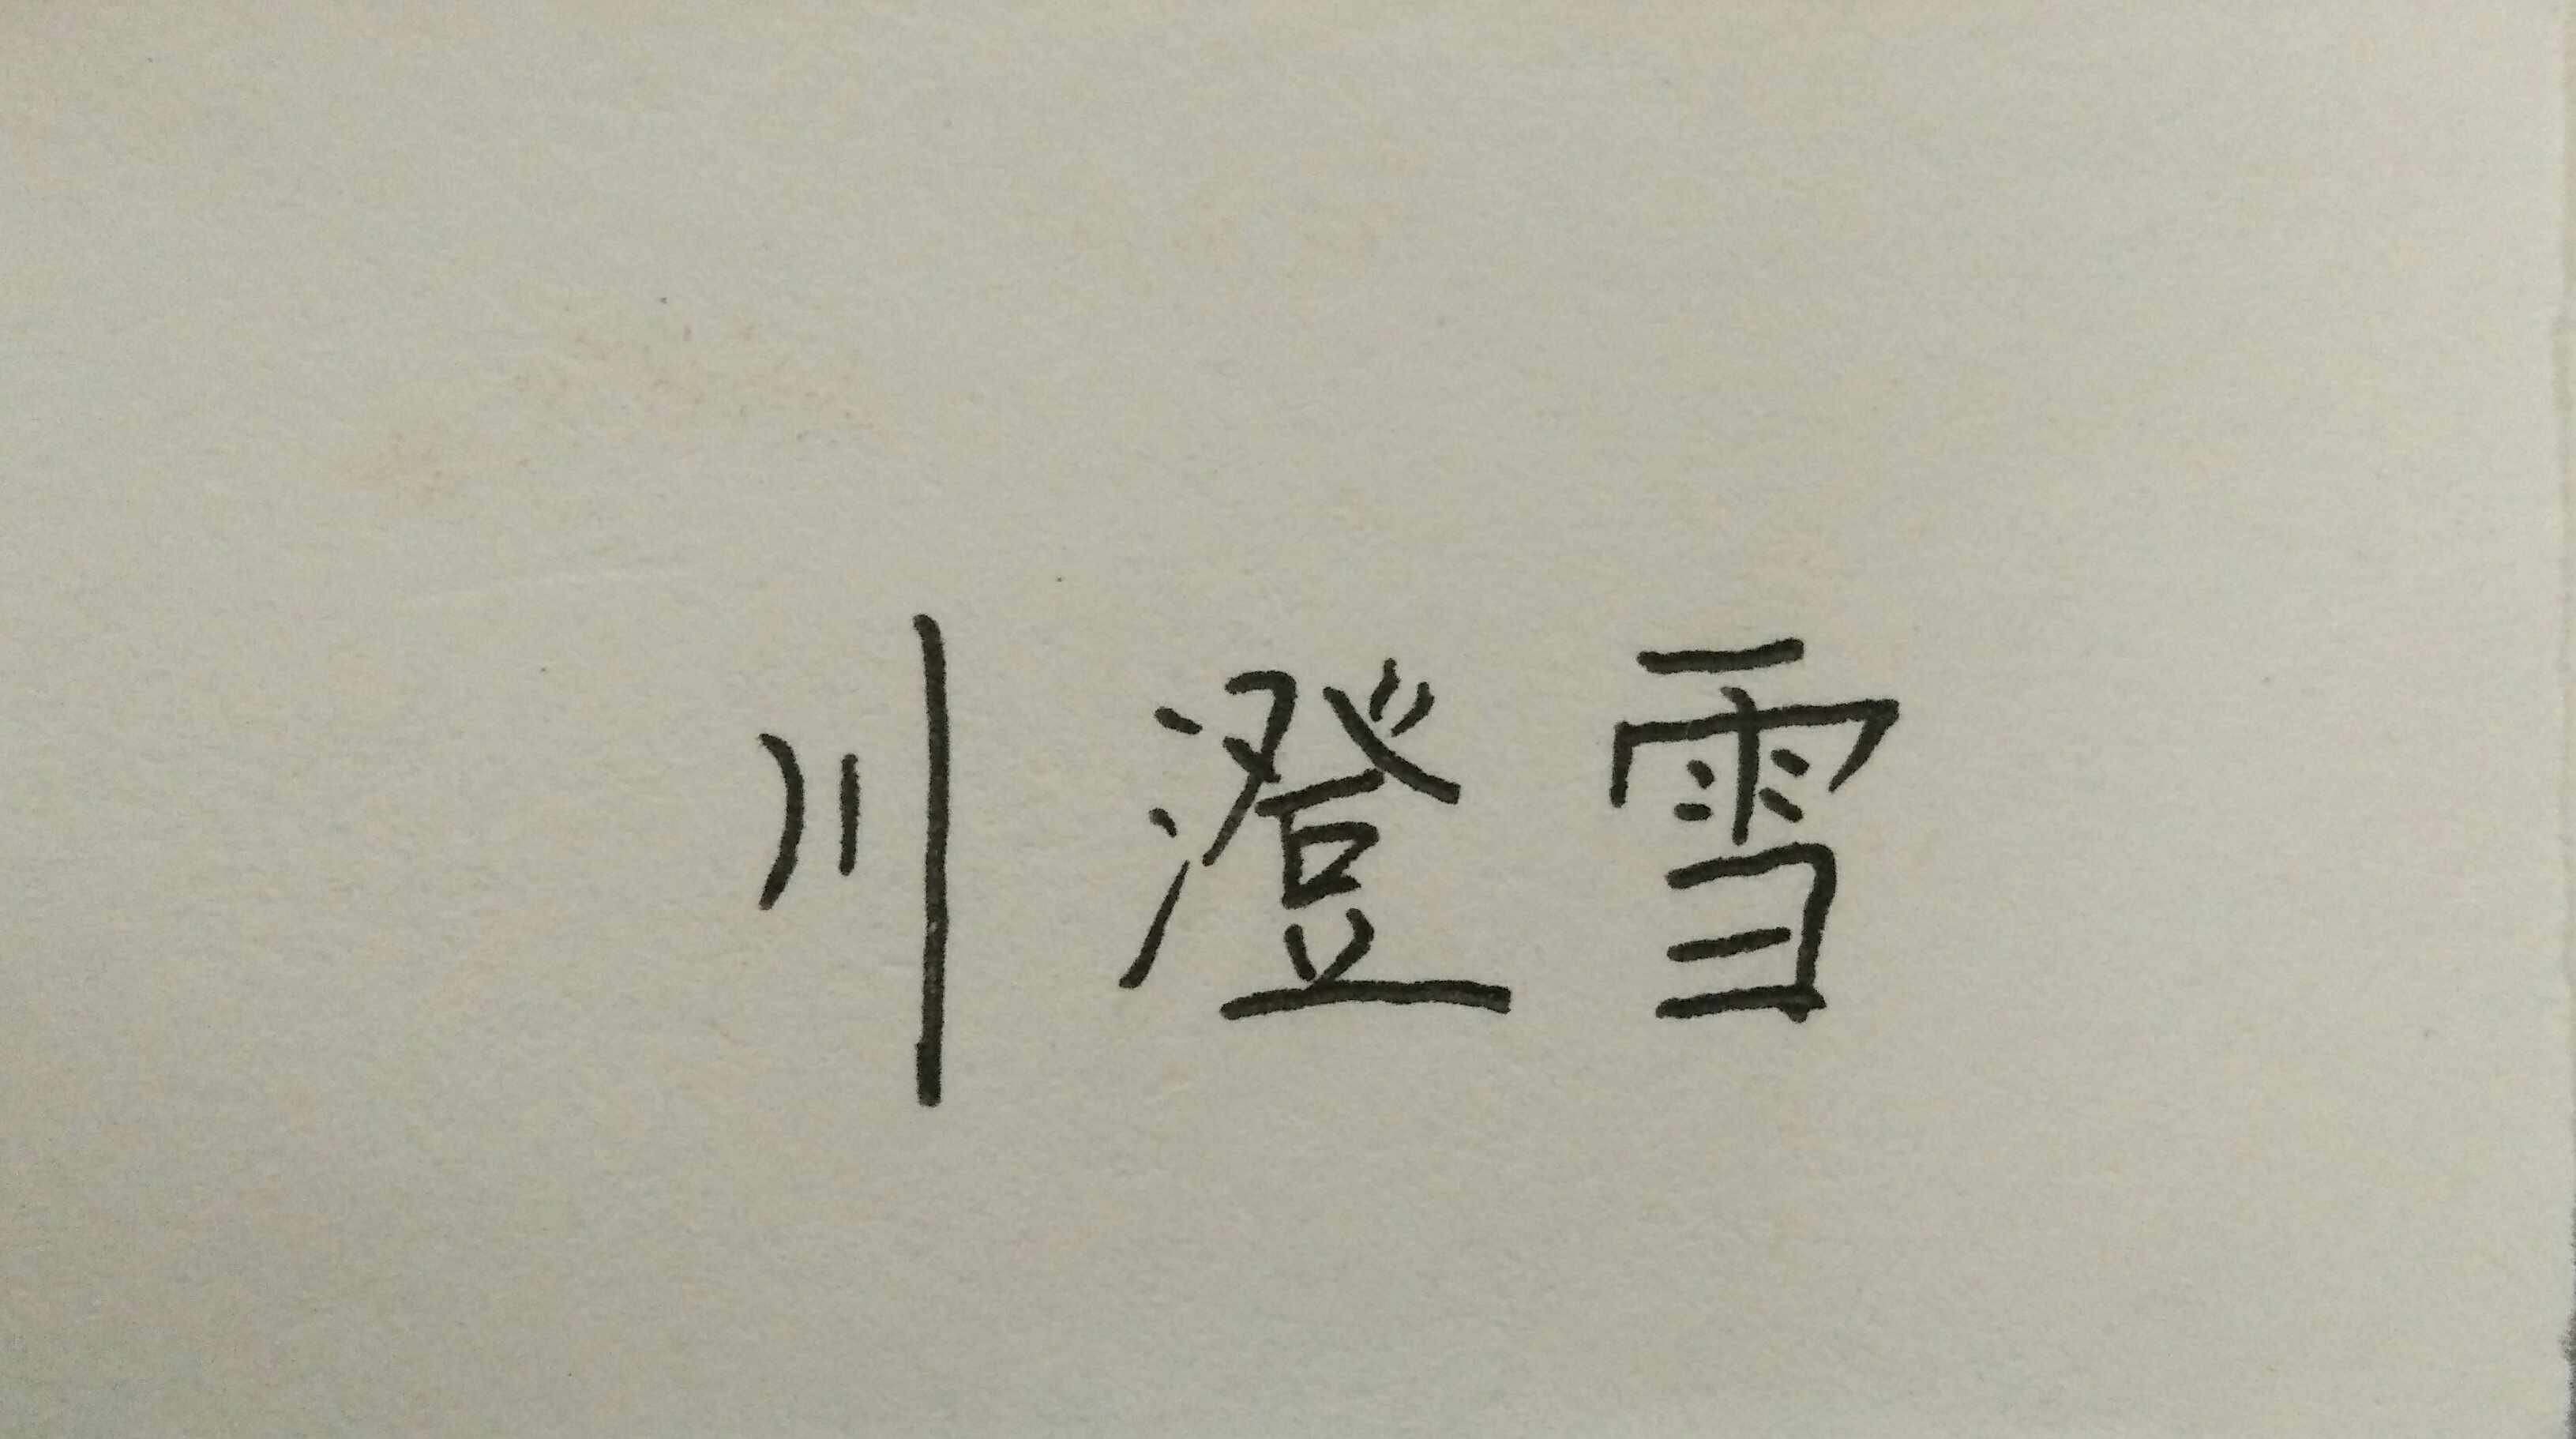 川澄雪